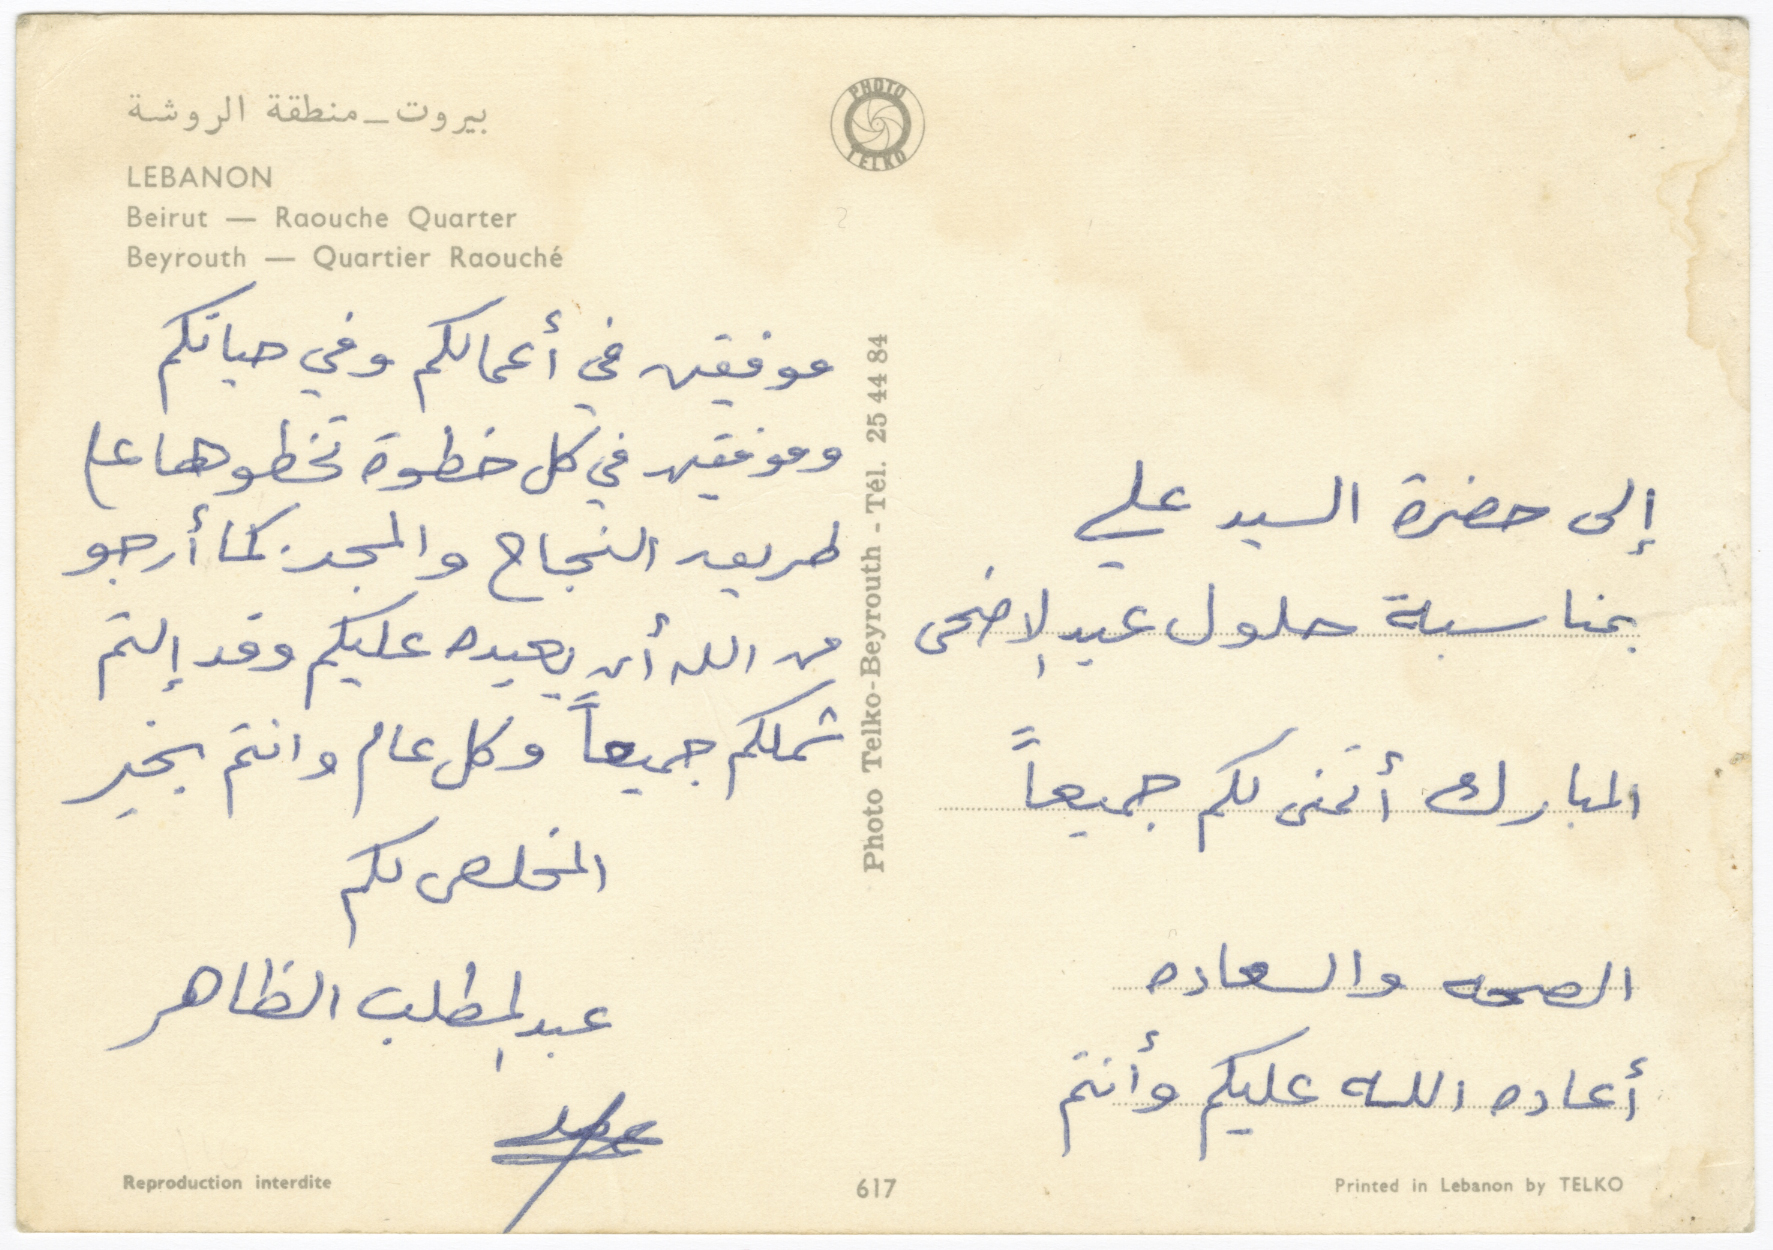 بيروت - منطقة الروشة
LEBANON
Beirut — Raouche Quarter
Beyrouth — Quartier Raouché
PHOTO
TELKO
إلى حضرة السيد علي
بمناسبة حلول عيد الاضحى
المبارك أتمنى لكم جميعاً
الصحه والسعاده
أعاده الله عليكم وأنتم
موفقين في أعمالكم وفي حياتكم
وموفقين في كل خطوة تخطوها على
طريق النجاح والمجد. كما أرجو
من الله أن يعيده عليكم وقد إلتم
شملكم جميعاً وكل عام وانتم بخير
المخلص لكم
عبد المطلب الظاهر
Photo Telko-Beyrouth - Tél. 25 44 84
Reproduction interdite
617
Printed in Lebanon by TELKO